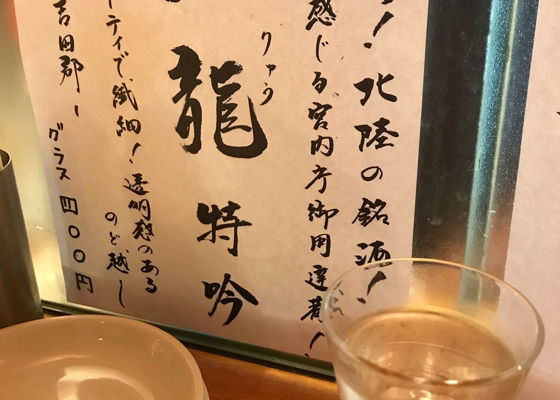 ！北陸の銘酒！
感じる宮内庁御用達蔵！
龍 特吟
りゅう
ティで繊細！透明感のある
のど越し
吉田郡ー
グラス 四〇〇円